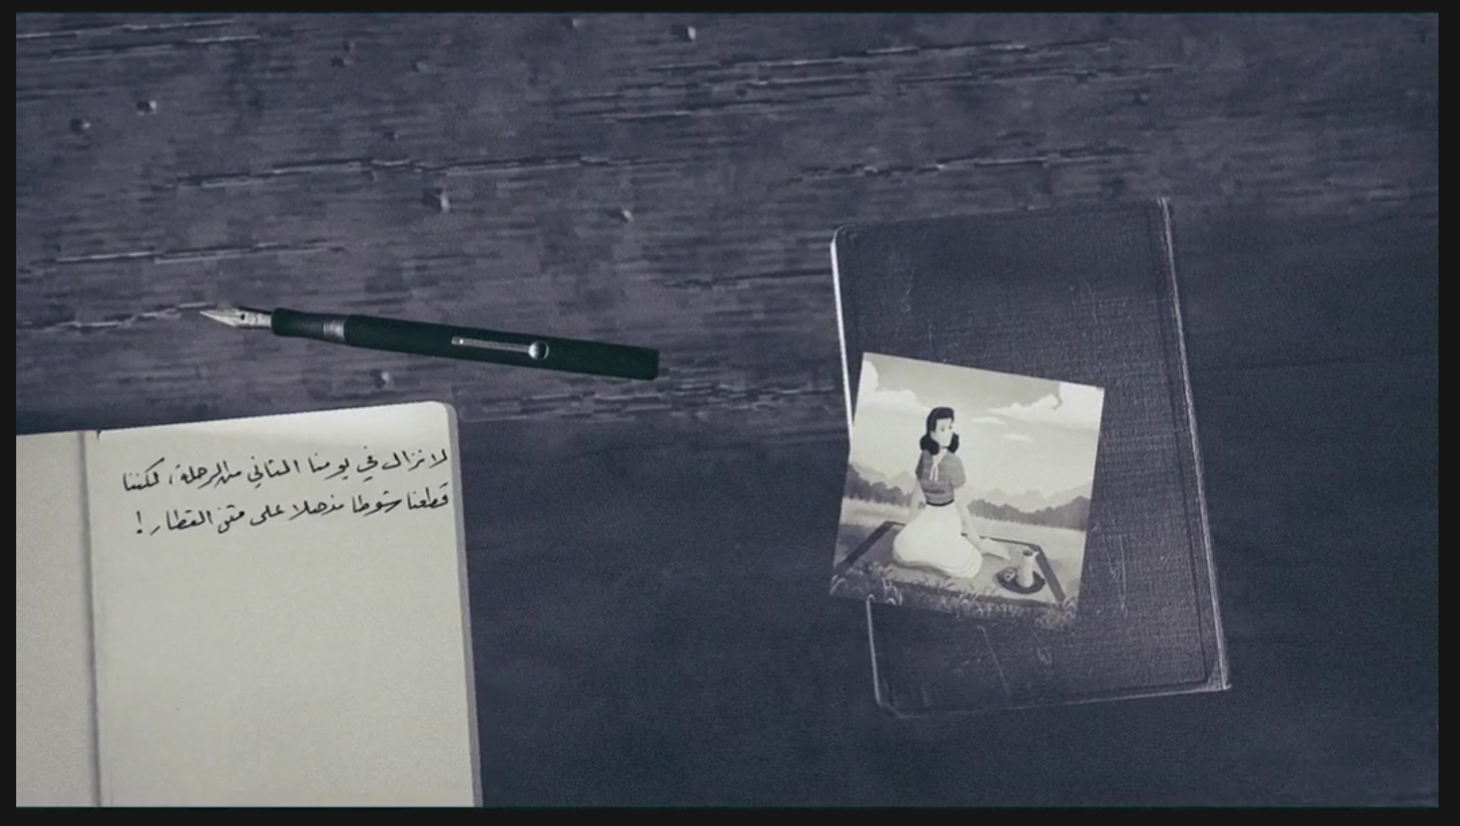 لا نزال في يومنا الثاني من الرحلة، لكننا
قطعنا شوطا مذهلا على متن القطار!